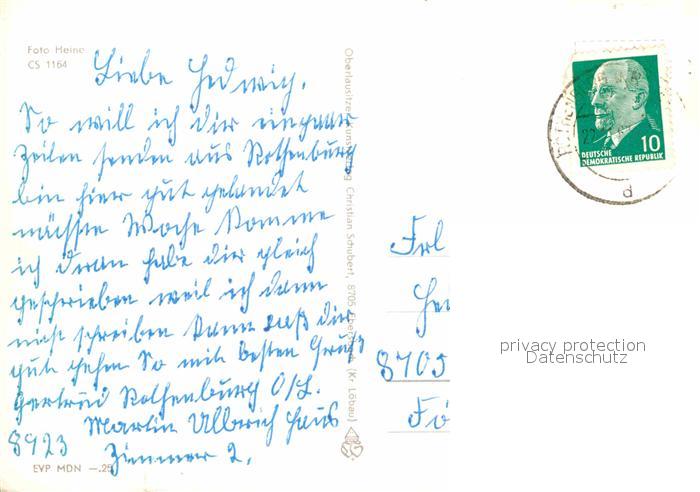 Foto Heine
CS 1164
Liebe Hedwig.
So will ich dir ein paar
Zeilen senden aus Rothenburg
bin hier gut gelandet
nächste Woche komme
ich dran habe dir gleich
geschrieben weil ich dann
nicht schreiben kann laß dir
gut gehen So mit besten Gruß
Gertrud Rothenburg O/L.
Martin Ulbrich Haus
8923 Zimmer 2.
EVP MDN —.25
Oberlausitzer Kunstverlag Christian Schubert, 8705 Ebersbach (Kr. Löbau)
10
DEUTSCHE
DEMOKRATISCHE REPUBLIK
d
Frl
8705
privacy protection
Datenschutz